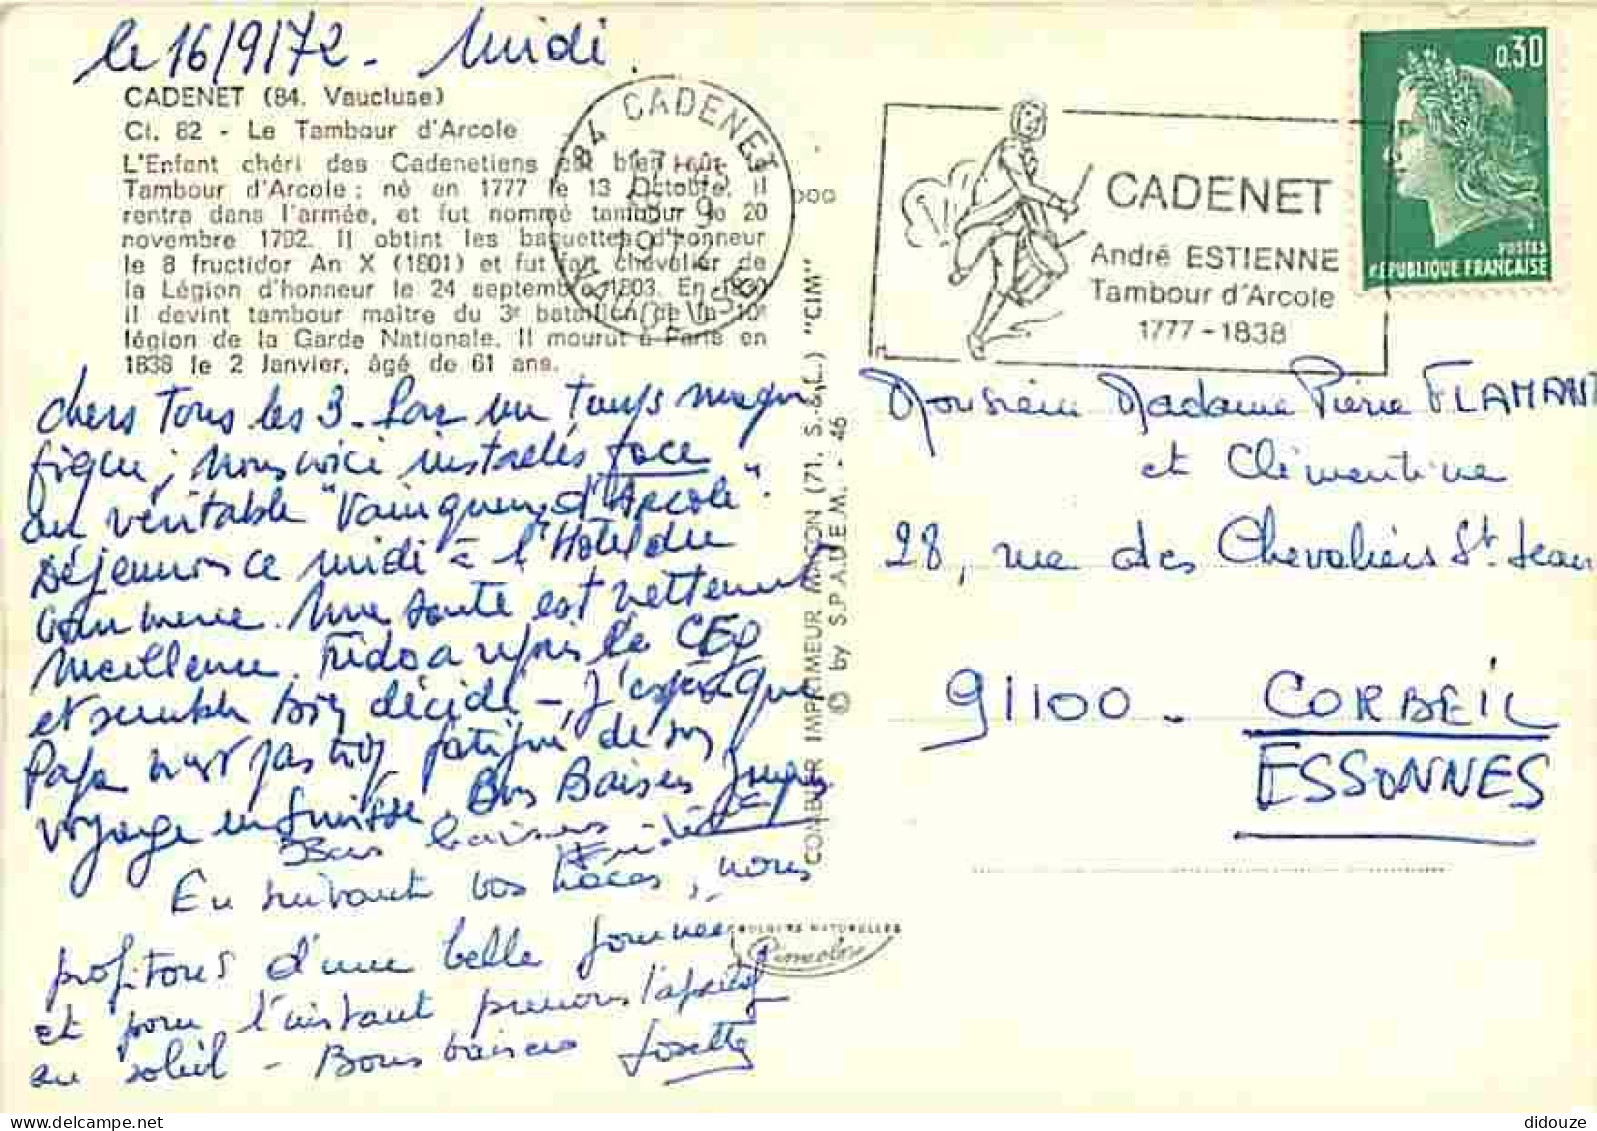 le 16/9/72 - Midi.
CADENET (84. Vaucluse)
Cl. 82 - Le Tambour d'Arcole
L'Enfant chéri des Cadenetiens est bien
Tambour d'Arcole : né en 1777 le 13 Octobre, il
rentra dans l'armée, et fut nommé tambour le 20
novembre 1792. Il obtint les baguettes d'honneur
le 8 fructidor An X (1801) et fut fait chevalier de
la Légion d'honneur le 24 septembre 1803. En 1830
il devint tambour maître du 3e bataillon de la 10e
légion de la Garde Nationale. Il mourut à Paris en
1838 le 2 Janvier, âgé de 61 ans.
chers Tous les 3. Par un temps magni
fique, nous voici installés face
au véritable "Vainqueur d'Arcole".
Déjeunons ce midi à l'Hotel du
commerce. Ma santé est nettement
meilleure. Frédo a repris le
et semble bien décidé -, J'espère que
Papa n'est pas trop fatigué de son
voyage en Suisse. Bons Baisers
Bons baisers
En suivant vos traces, nous
profitons d'une belle journée
et pour l'instant prenons l'apéritif
au soleil - Bons baisers Josette
84 CADENET
VAUCLUSE
CADENET
André ESTIENNE
Tambour d'Arcole
1777 - 1838
0,30
POSTES
RÉPUBLIQUE FRANÇAISE
COMBIER IMPRIMEUR MACON (71. S.-&-L.) "CIM"
© by S.P.A.D.E.M. - 46
Monsieur Madame Pierre FLAMANT
et Clémentine
28, rue des Chevaliers St Jean
91100 - CORBEIL
ESSONNES
COULEURS NATURELLES
didouze